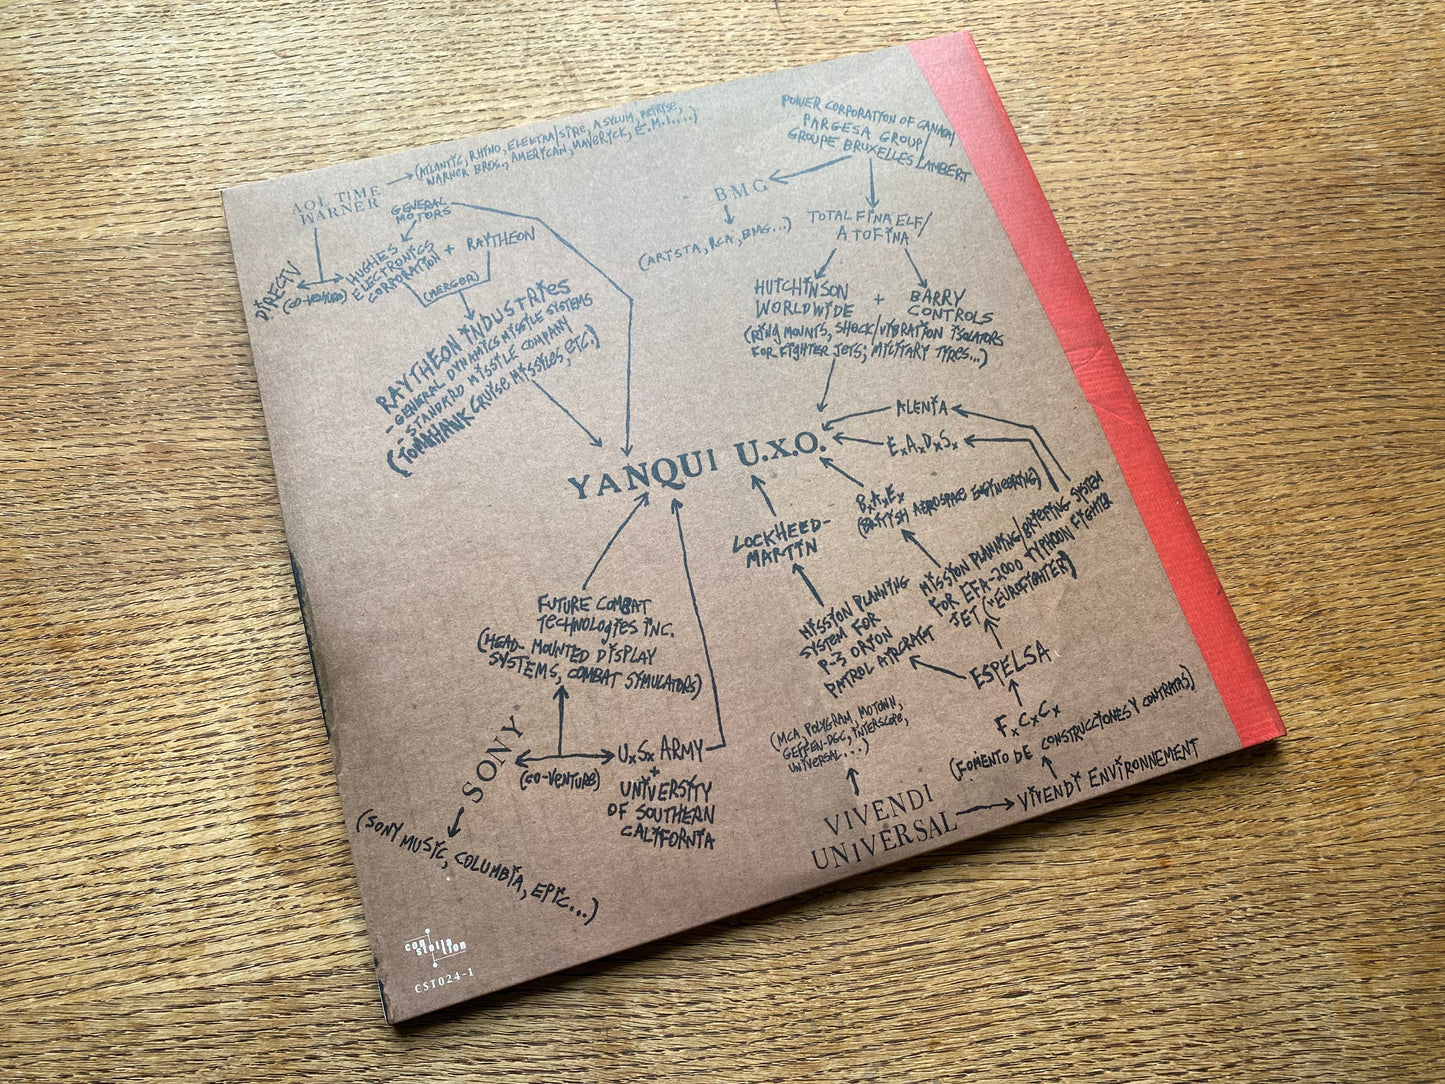 AOL TIME
WARNER
(ATLANTIC, RHINO, ELEKTRA/SIRE, ASYLUM, REPRISE,
WARNER BROS., AMERICAN, MAVERICK, E.M.I....)
GENERAL
MOTORS
DIRECTV
(CO-VENTURE)
HUGHES
ELECTRONICS
CORPORATION
+
RAYTHEON
(MERGER)
RAYTHEON INDUSTRIES
- GENERAL DYNAMICS MISSILE SYSTEMS
- STANDARD MISSILE COMPANY
(TOMAHAWK CRUISE MISSILES, ETC.)
POWER CORPORATION OF CANADA/
PARGESA GROUP/
GROUPE BRUXELLES LAMBERT
BMG
(ARISTA, RCA, BMG...)
TOTAL FINA ELF/
ATOFINA
HUTCHINSON
WORLDWIDE
+
BARRY
CONTROLS
(RING MOUNTS, SHOCK/VIBRATION ISOLATORS
FOR FIGHTER JETS; MILITARY TYRES...)
YANQUI U.X.O.
ALENIA
E.A.D.S.
B.A.E.
(BRITISH AEROSPACE ENGINEERING)
LOCKHEED-
MARTIN
MISSION PLANNING
SYSTEM FOR
P-3 ORION
PATROL AIRCRAFT
MISSION PLANNING/BRIEFING SYSTEM
FOR EFA-2000 TYPHOON FIGHTER
JET ("EUROFIGHTER)
ESPELSA
F.C.C.
(FOMENTO DE CONSTRUCCIONES Y CONTRATAS)
VIVENDI ENVIRONNEMENT
VIVENDI
UNIVERSAL
(MCA, POLYGRAM, MOTOWN,
GEFFEN-DGC, INTERSCOPE,
UNIVERSAL...)
FUTURE COMBAT
TECHNOLOGIES INC.
(HEAD-MOUNTED DISPLAY
SYSTEMS, COMBAT SYMULATORS)
SONY
(CO-VENTURE)
U.S. ARMY
+
UNIVERSITY
OF SOUTHERN
CALIFORNIA
(SONY MUSIC, COLUMBIA, EPIC...)
constellation
CST024-1